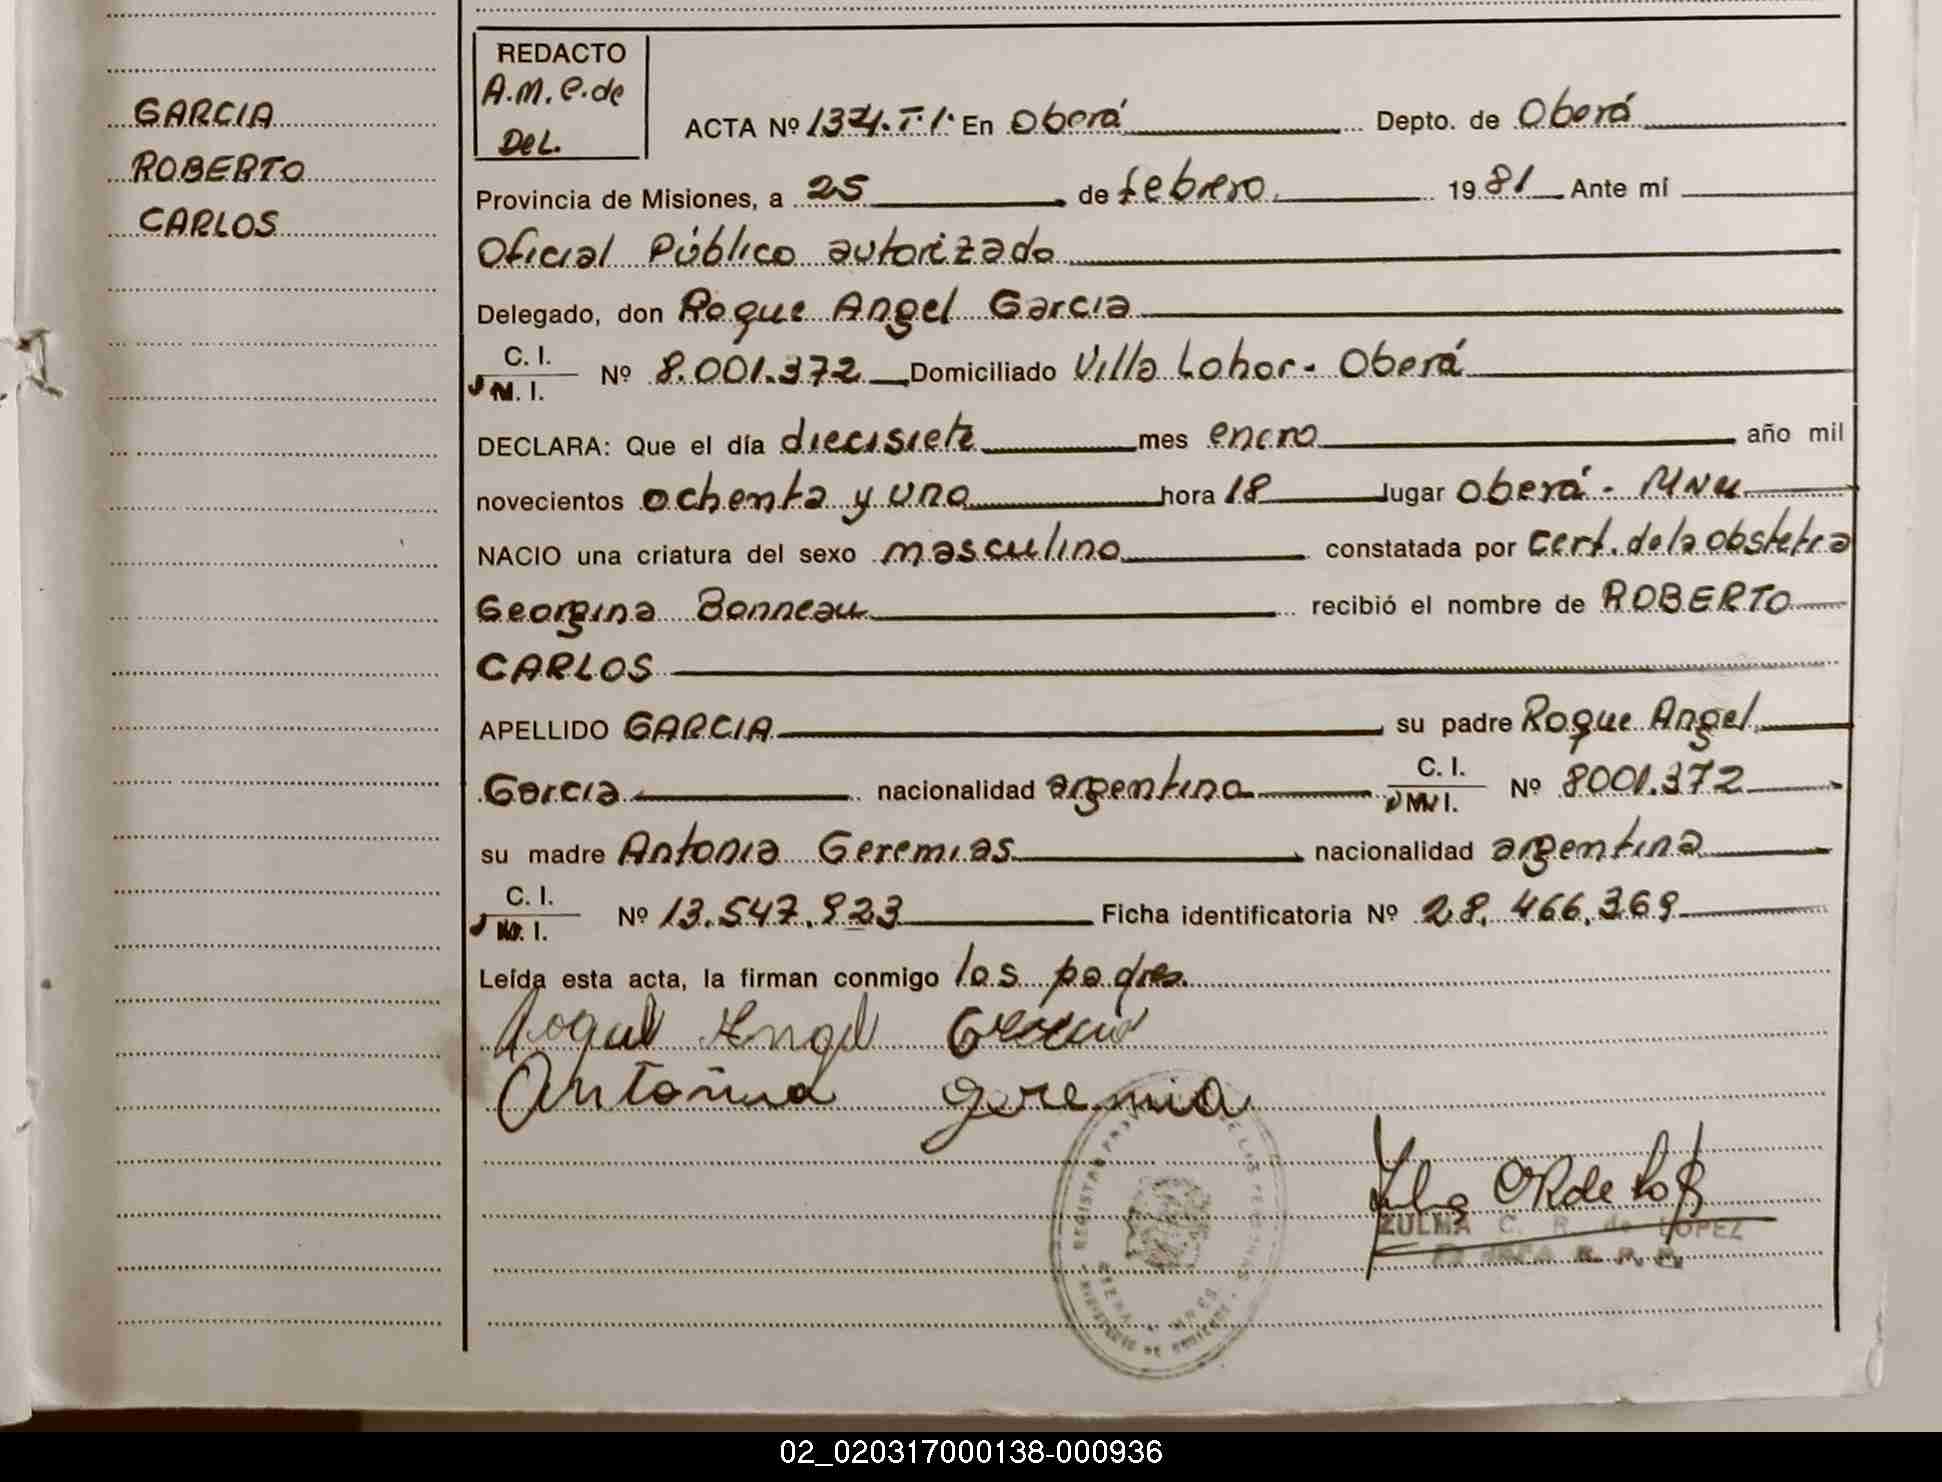 GARCIA
ROBERTO
CARLOS
REDACTO
A.M.C. de
DeL.
ACTA Nº 1374.T.1. En Oberá Depto. de Oberá
Provincia de Misiones, a 25 de febrero. 1981 Ante mí
Oficial Público autorizado
Delegado, don Roque Angel Garcia
C. I.
M. I. Nº 8.001.372 Domiciliado Villa Lohor - Oberá
DECLARA: Que el día diecisiete mes enero año mil
novecientos ochenta y uno hora 18 lugar Oberá -
NACIO una criatura del sexo masculino constatada por Cert. de la obstetra
Georgina Bonneau recibió el nombre de ROBERTO
CARLOS
APELLIDO GARCIA su padre Roque Angel
Garcia nacionalidad argentina C. I.
M. I. Nº 8001.372
su madre Antonia Geremias nacionalidad argentina
C. I.
M. I. Nº 13.547.923 Ficha identificatoria Nº 28.466.369
Leída esta acta, la firman conmigo los padres.
Roque Angel Garcia
Antonia geremia
ZULMA C. R. de LOPEZ
02_020317000138-000936